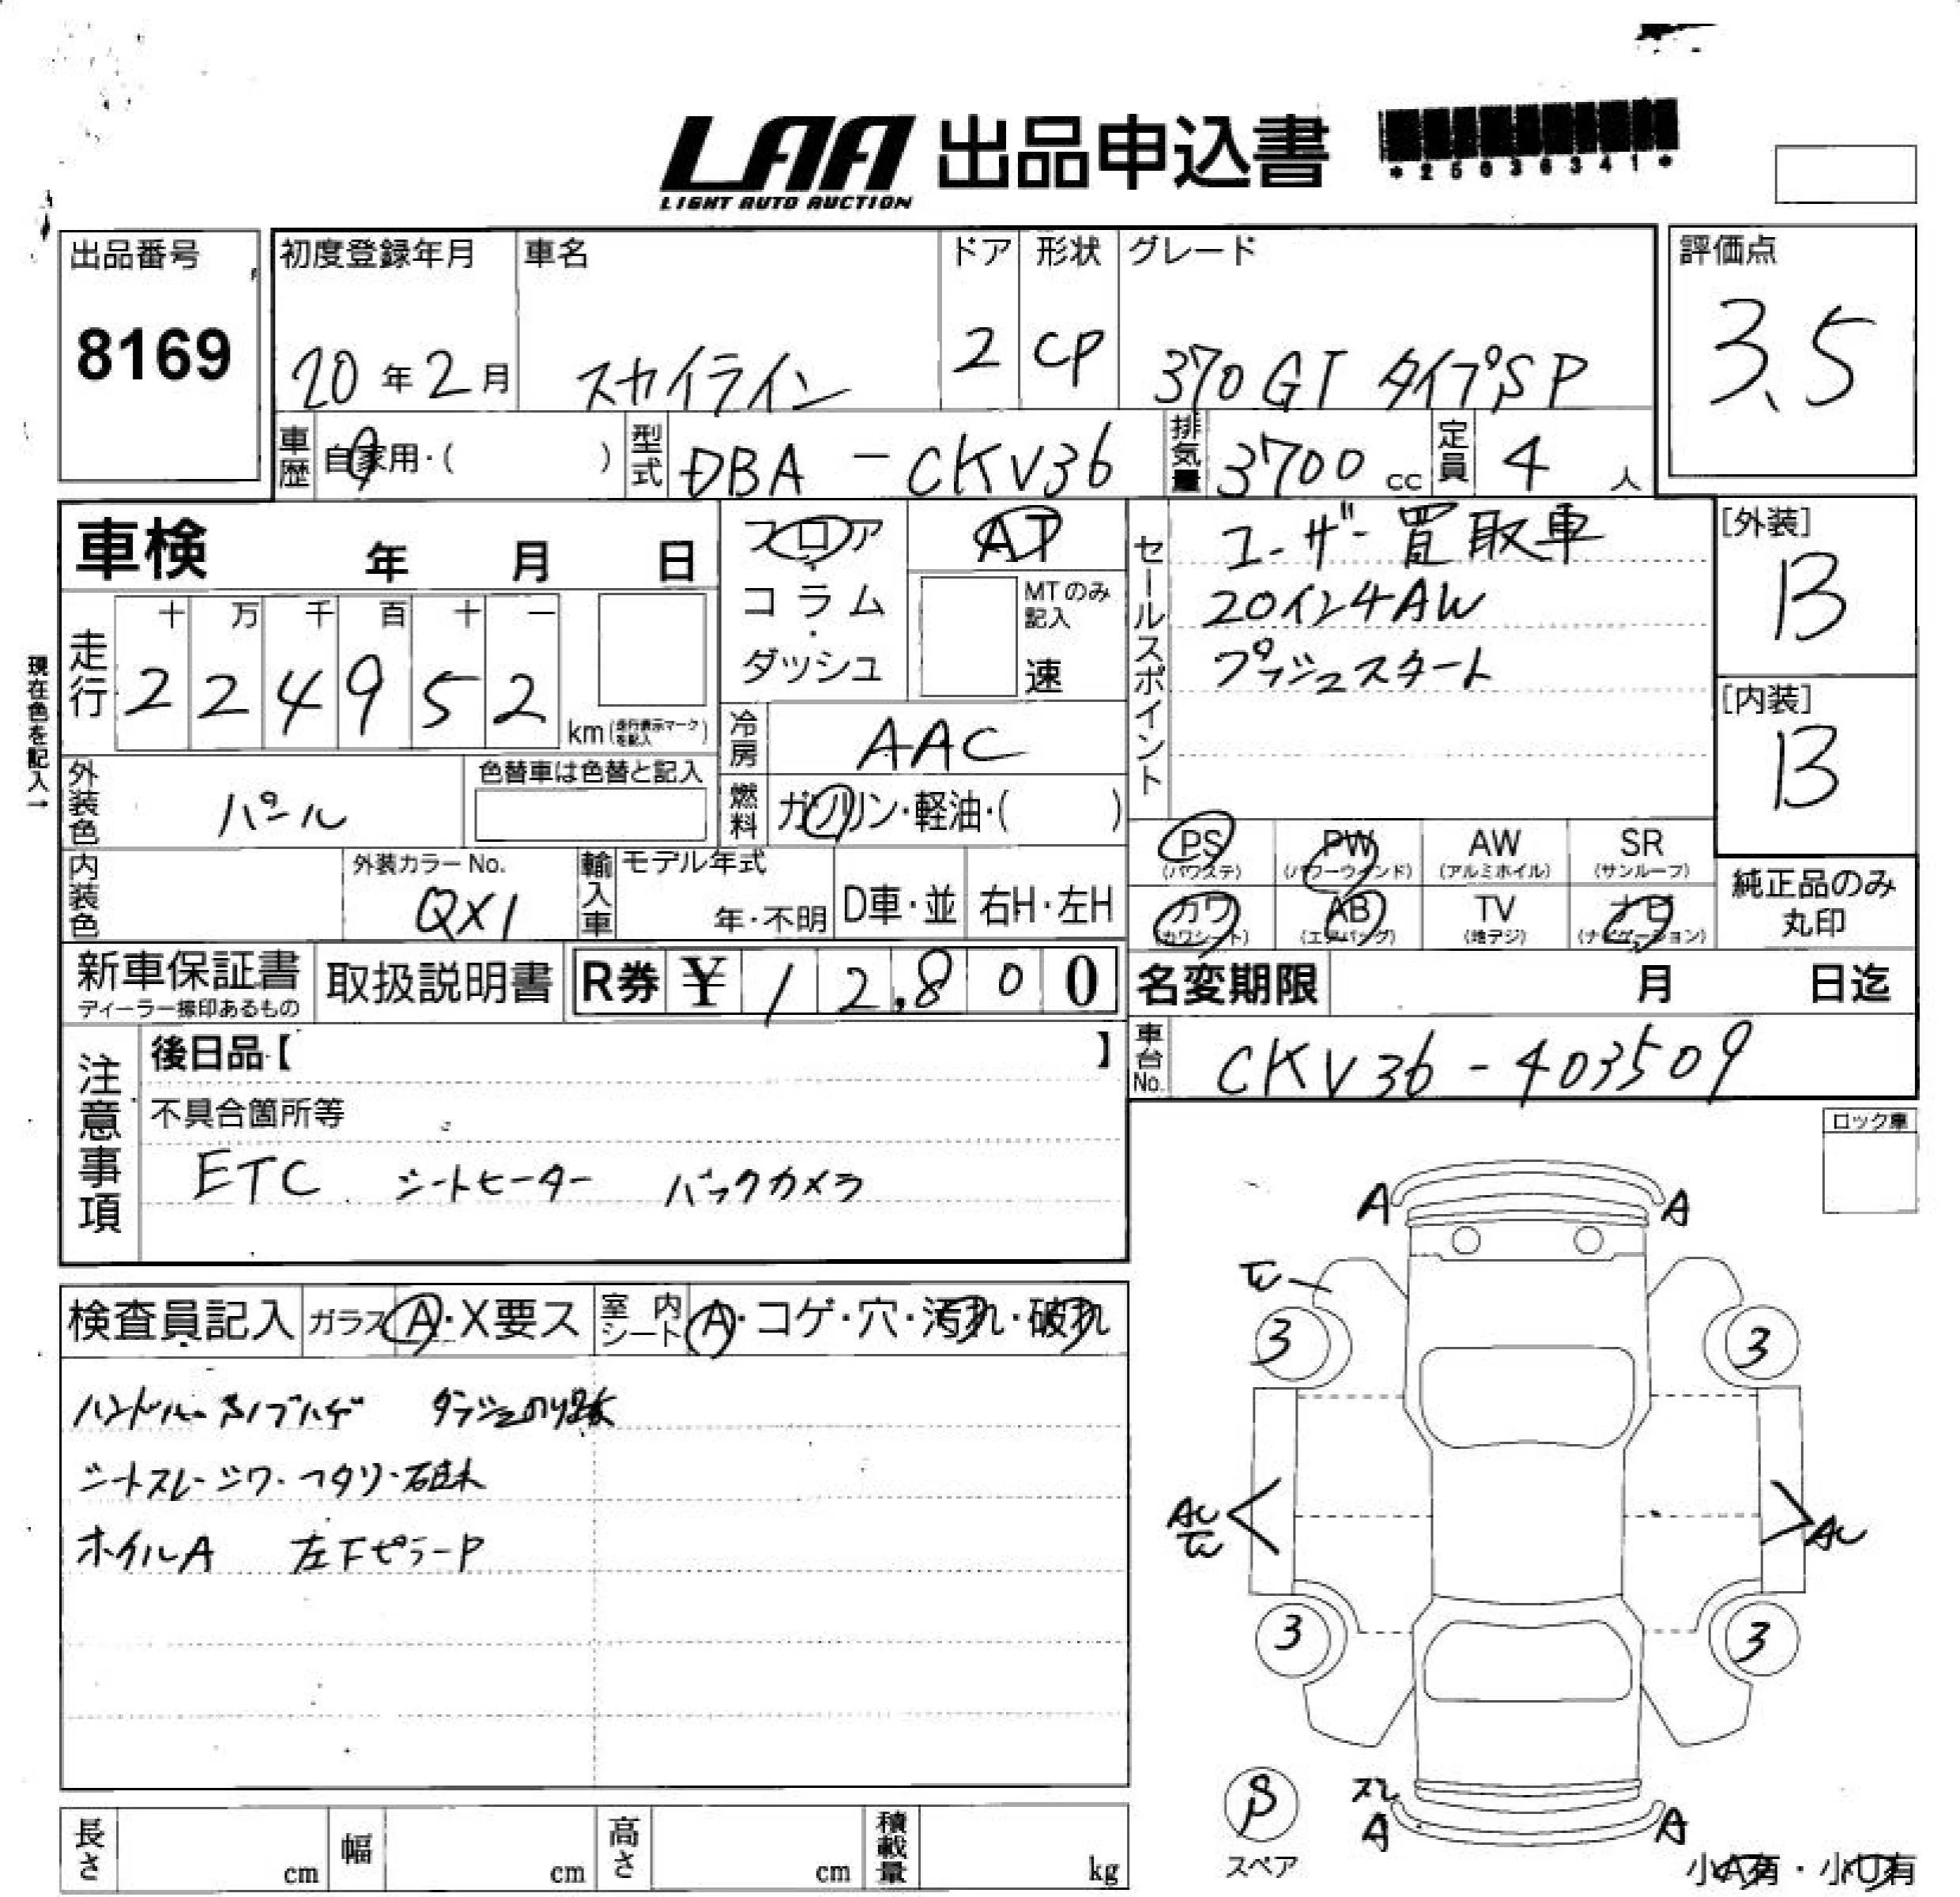 LAA 出品申込書
LIGHT AUTO AUCTION
*25036341*
出品番号
8169
初度登録年月
20年2月
車名
スカイライン
ドア
2
形状
CP
グレード
370GT タイプSP
評価点
3.5
車歴
自家用・( )
型式
DBA-CKV36
排気量
3700 cc
定員
4 人
車検 年 月 日
現在色を記入→
走行
十 万 千 百 十 一
2 2 4 9 5 2
km(走行表示マークを記入)
フロア
・
コラム
・
ダッシュ
AT
MTのみ記入
速
冷房
AAC
燃料
ガソリン・軽油・( )
外装色
パール
色替車は色替と記入
内装色
外装カラーNo.
QX1
輸入車
モデル年式
年・不明
D車・並
右H・左H
セールスポイント
ユーザー買取車
20インチAW
プッシュスタート
[外装]
B
[内装]
B
PS (パワステ)
PW (パワーウインド)
AW (アルミホイル)
SR (サンルーフ)
カワ (カワシート)
AB (エアバッグ)
TV (地デジ)
ナビ (ナビゲーション)
純正品のみ
丸印
新車保証書
ディーラー捺印あるもの
取扱説明書
R券 ¥ 12,800
名変期限 月 日迄
車台No.
CKV36-403509
注意事項
後日品【 】
不具合箇所等
ETC シートヒーター バックカメラ
ロック車
検査員記入
ガラス A・X要ス
室内シート A・コゲ・穴・汚れ・破れ
シートスレ・シワ・ヘタリ・破
ホイルA 左下ピラーP
A A
3 3
AU
AU
3 3
スレ
A A
スペア
小A有・小U有
長さ cm
幅 cm
高さ cm
積載量 kg